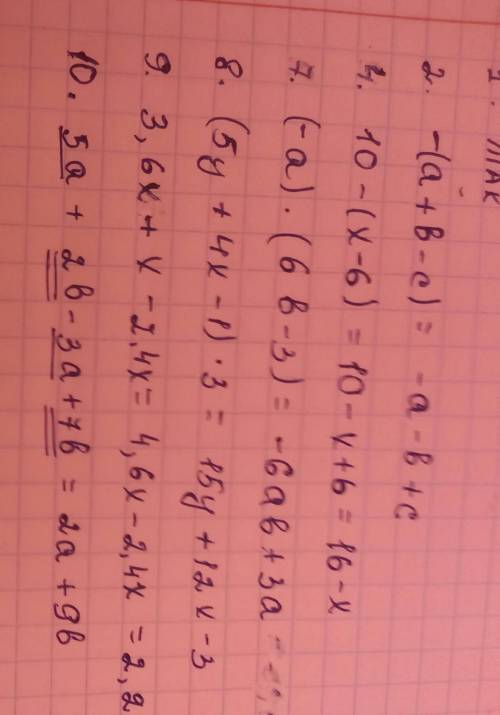 2. -(a + b - c) = -a - b + c
4. 10 - (x - 6) = 10 - x + 6 = 16 - x
7. (-a) · (6b - 3) = -6ab + 3a
8. (5y + 4x - 1) · 3 = 15y + 12x - 3
9. 3,6x + x - 2,4x = 4,6x - 2,4x = 2,2
10. 5a + 2b - 3a + 7b = 2a + 9b